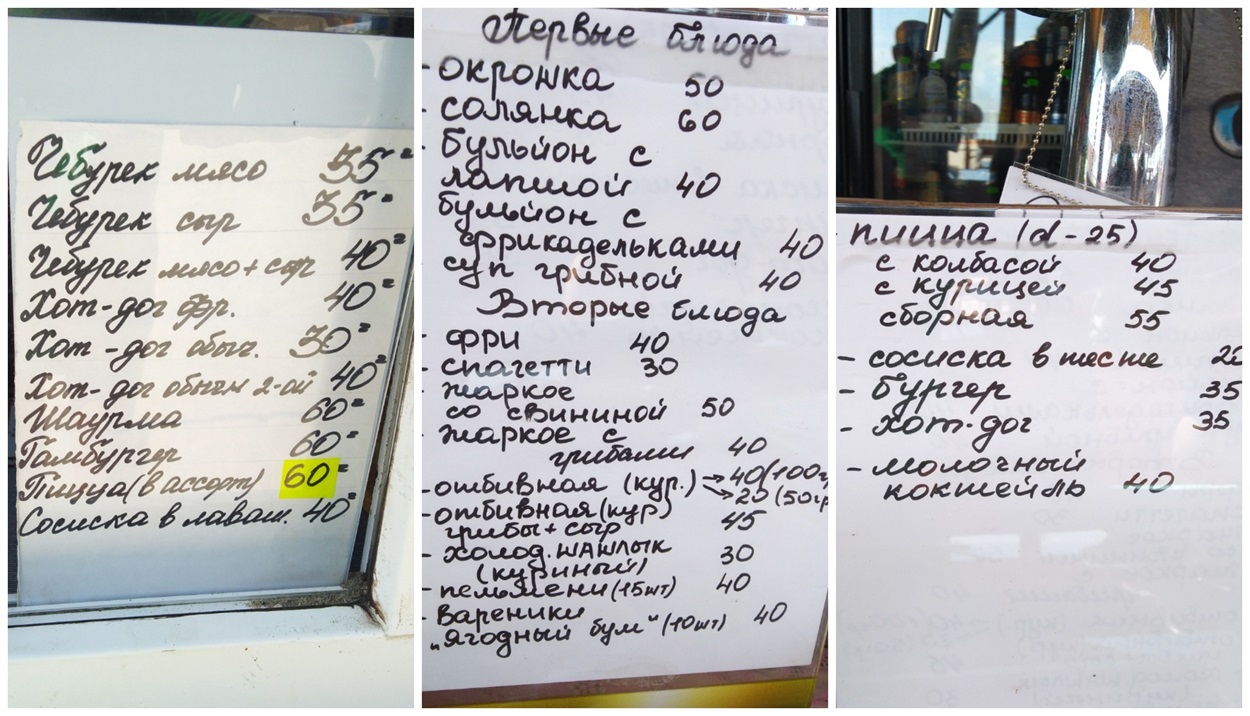 Чебурек мясо 35=
Чебурек сыр 35=
Чебурек мясо+сыр 40=
Хот-дог фр. 40=
Хот-дог обыч. 30=
Хот-дог 2-ой 40=
Шаурма 60=
Гамбургер 60=
Пицца (в ассорт) 60=
Сосиска в лаваш. 40=
Первые блюда
- окрошка 50
- солянка 60
- бульйон с
лапшой 40
бульйон с
фрикадельками 40
суп грибной 40
Вторые блюда
- фри 40
- спагетти 30
- жаркое
со свининой 50
- жаркое с
грибами 40
- отбивная (кур.) → 40 (100г
→ 20 (50гр
- отбивная (кур)
грибы + сыр 45
- холод. шашлык 30
(куриный)
- пельмени (15шт) 40
- вареники
„Ягодный бум" (10шт) 40
- пицца (d-25)
с колбасой 40
с курицей 45
сборная 55
- сосиска в тесте
- бургер 35
- хот-дог 35
- молочный
коктейль 40